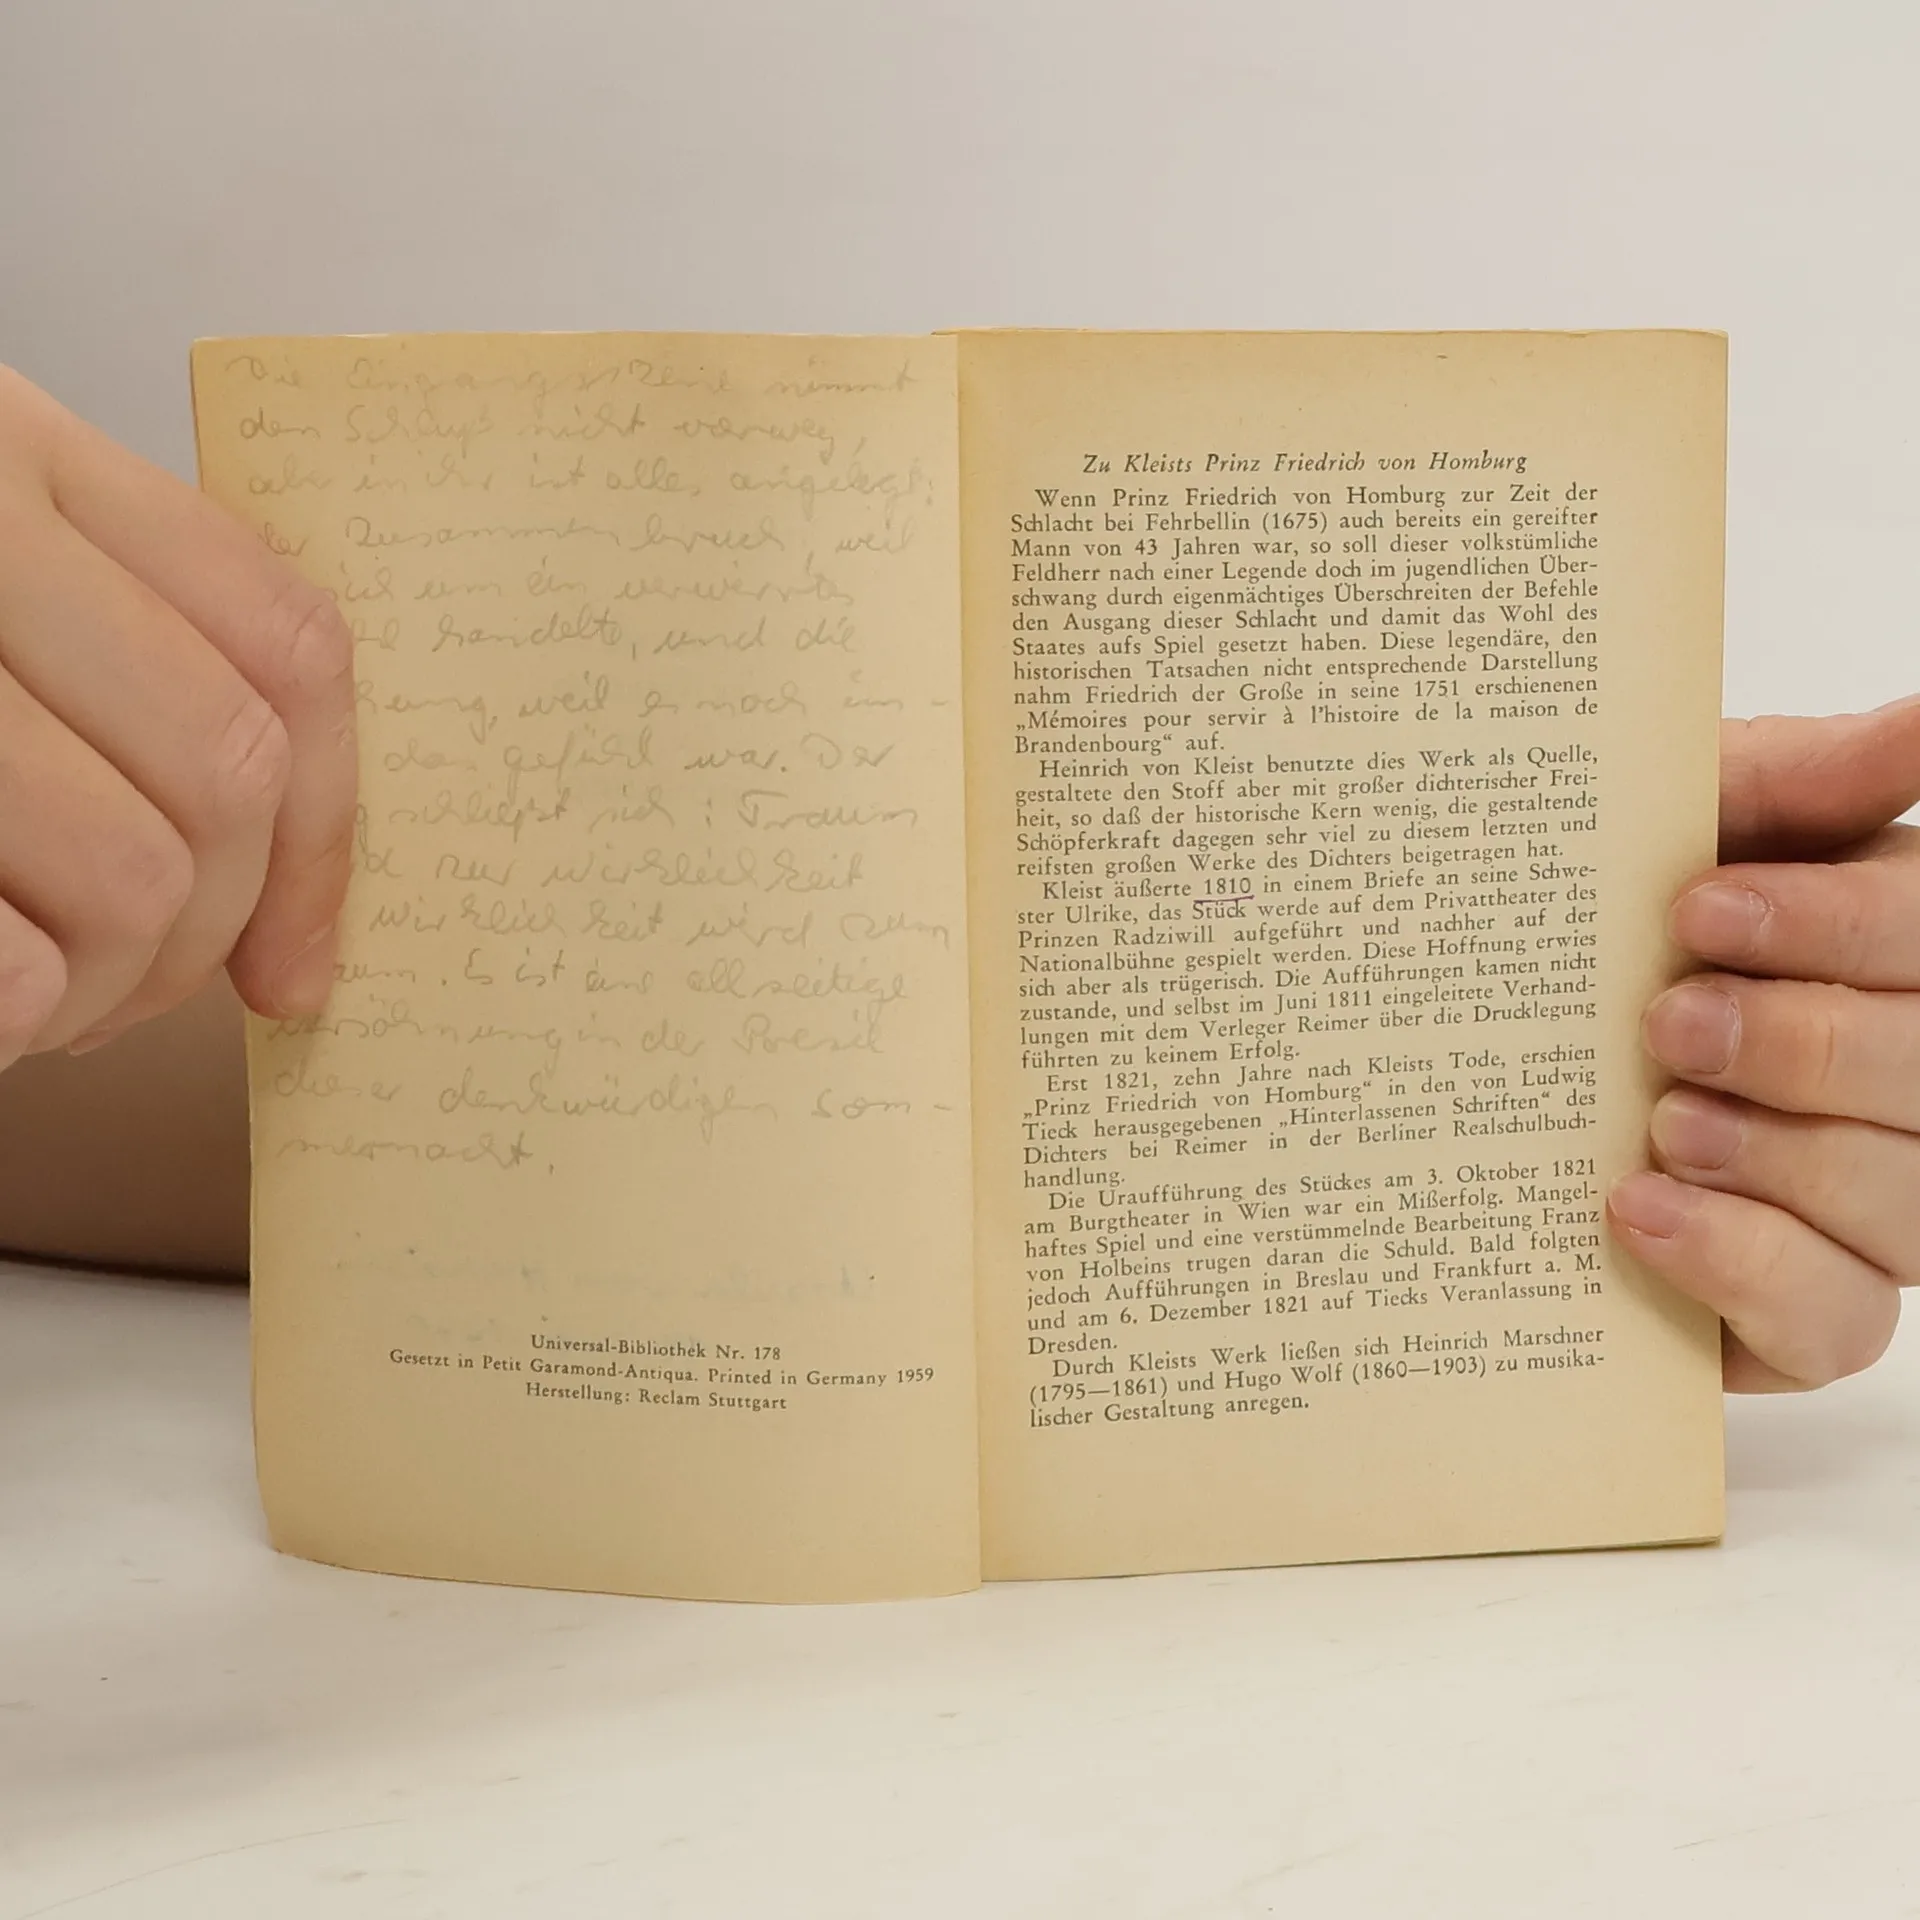 Die Eingangsszene nimmt
den Schluß nicht vorweg,
aber in ihr ist alles angelegt:
der Zusammenbruch, weil
sich um ein verwirrtes
handelte, und die
weil es noch im-
das gefühl war. Der
schließt sich: Traum
zur Wirklichkeit
Wirklichkeit wird zum
Es ist eine allseitige
versöhnung in der Poesie
dieser denkwürdigen Som-
mernacht.
Universal-Bibliothek Nr. 178
Gesetzt in Petit Garamond-Antiqua. Printed in Germany 1959
Herstellung: Reclam Stuttgart
Zu Kleists Prinz Friedrich von Homburg
Wenn Prinz Friedrich von Homburg zur Zeit der
Schlacht bei Fehrbellin (1675) auch bereits ein gereifter
Mann von 43 Jahren war, so soll dieser volkstümliche
Feldherr nach einer Legende doch im jugendlichen Über-
schwang durch eigenmächtiges Überschreiten der Befehle
den Ausgang dieser Schlacht und damit das Wohl des
Staates aufs Spiel gesetzt haben. Diese legendäre, den
historischen Tatsachen nicht entsprechende Darstellung
nahm Friedrich der Große in seine 1751 erschienenen
„Mémoires pour servir à l'histoire de la maison de
Brandenbourg“ auf.
Heinrich von Kleist benutzte dies Werk als Quelle,
gestaltete den Stoff aber mit großer dichterischer Frei-
heit, so daß der historische Kern wenig, die gestaltende
Schöpferkraft dagegen sehr viel zu diesem letzten und
reifsten großen Werke des Dichters beigetragen hat.
Kleist äußerte 1810 in einem Briefe an seine Schwe-
ster Ulrike, das Stück werde auf dem Privattheater des
Prinzen Radziwill aufgeführt und nachher auf der
Nationalbühne gespielt werden. Diese Hoffnung erwies
sich aber als trügerisch. Die Aufführungen kamen nicht
zustande, und selbst im Juni 1811 eingeleitete Verhand-
lungen mit dem Verleger Reimer über die Drucklegung
führten zu keinem Erfolg.
Erst 1821, zehn Jahre nach Kleists Tode, erschien
„Prinz Friedrich von Homburg“ in den von Ludwig
Tieck herausgegebenen „Hinterlassenen Schriften“ des
Dichters bei Reimer in der Berliner Realschulbuch-
handlung.
Die Uraufführung des Stückes am 3. Oktober 1821
am Burgtheater in Wien war ein Mißerfolg. Mangel-
haftes Spiel und eine verstümmelnde Bearbeitung Franz
von Holbeins trugen daran die Schuld. Bald folgten
jedoch Aufführungen in Breslau und Frankfurt a. M.
und am 6. Dezember 1821 auf Tiecks Veranlassung in
Dresden.
Durch Kleists Werk ließen sich Heinrich Marschner
(1795—1861) und Hugo Wolf (1860—1903) zu musika-
lischer Gestaltung anregen.